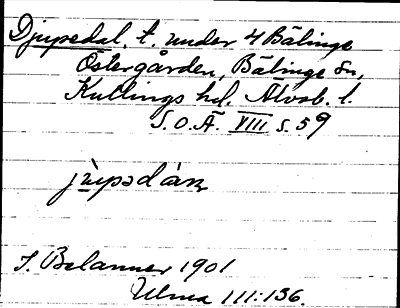 Djupedal. t. under 4 Bälinge
Östergården, Bälinge sn,
Kullings hd. Älvsb. l.
S.O.Ä. VIII s. 59
J. Belanner 1901
Ulma 111:136.